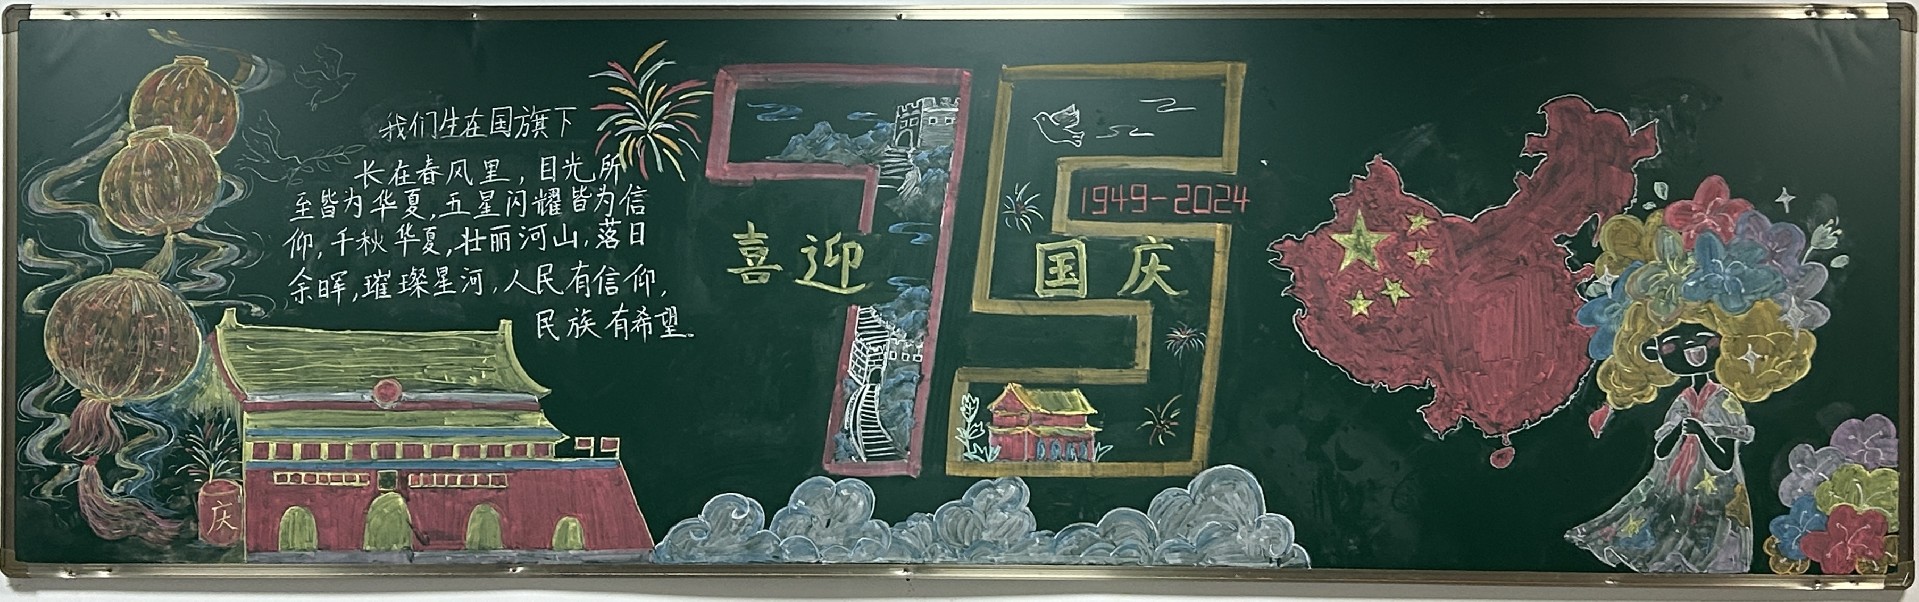 我们生在国旗下
长在春风里，目光所
至皆为华夏，五星闪耀皆为信
仰，千秋华夏，壮丽河山，落日
余晖，璀璨星河，人民有信仰，
民族有希望。
75
1949-2024
喜迎 国庆
庆